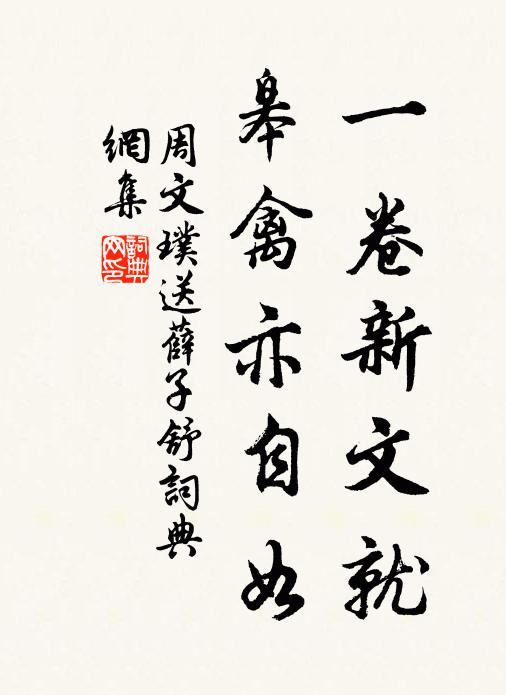 一卷新文就
皋禽亦自如
周文璞送薛子舒詞典
網集
詞典網印